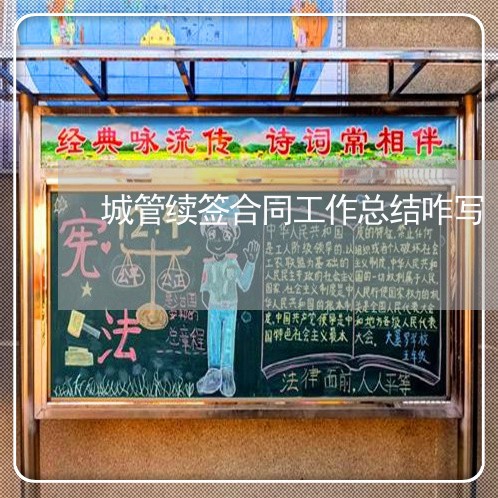 经典咏流传 诗词常相伴
城管续签合同工作总结咋写
宪法
公平 公正
总章程
中华人民共和国
是工人阶级领导的,以
工农联盟为基础的
人民民主专政的社会主义
国家.社会主义制度是中
华人民共和国的根本制
度.中国共产党领导是中
国特色社会主义最本
质的特征.禁止任何
组织或者个人破坏社会
主义制度.中华人民共和
国的一切权利属于人民.
人民行使国家权力的机
关是全国人民代表大会
和地方各级人民代表
大会.
五年级
法律面前,人人平等